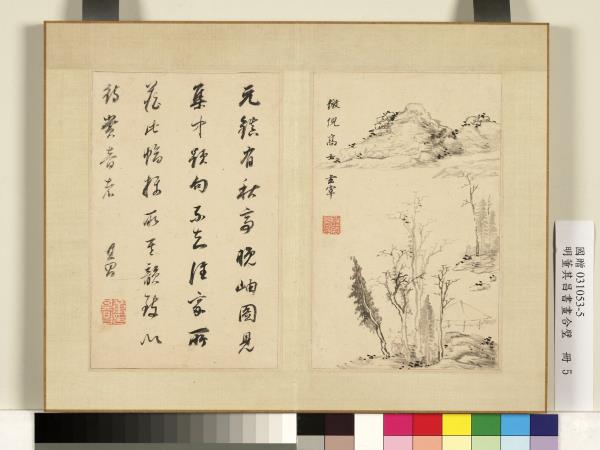 倣倪高士 玄宰
元鎮有秋亭晚岫圖見
集中題句不知誰家所
藏此幅擬取其韻致以
待賞音者
其昌
國贈 031053-5
明董其昌書畫合璧 冊 5